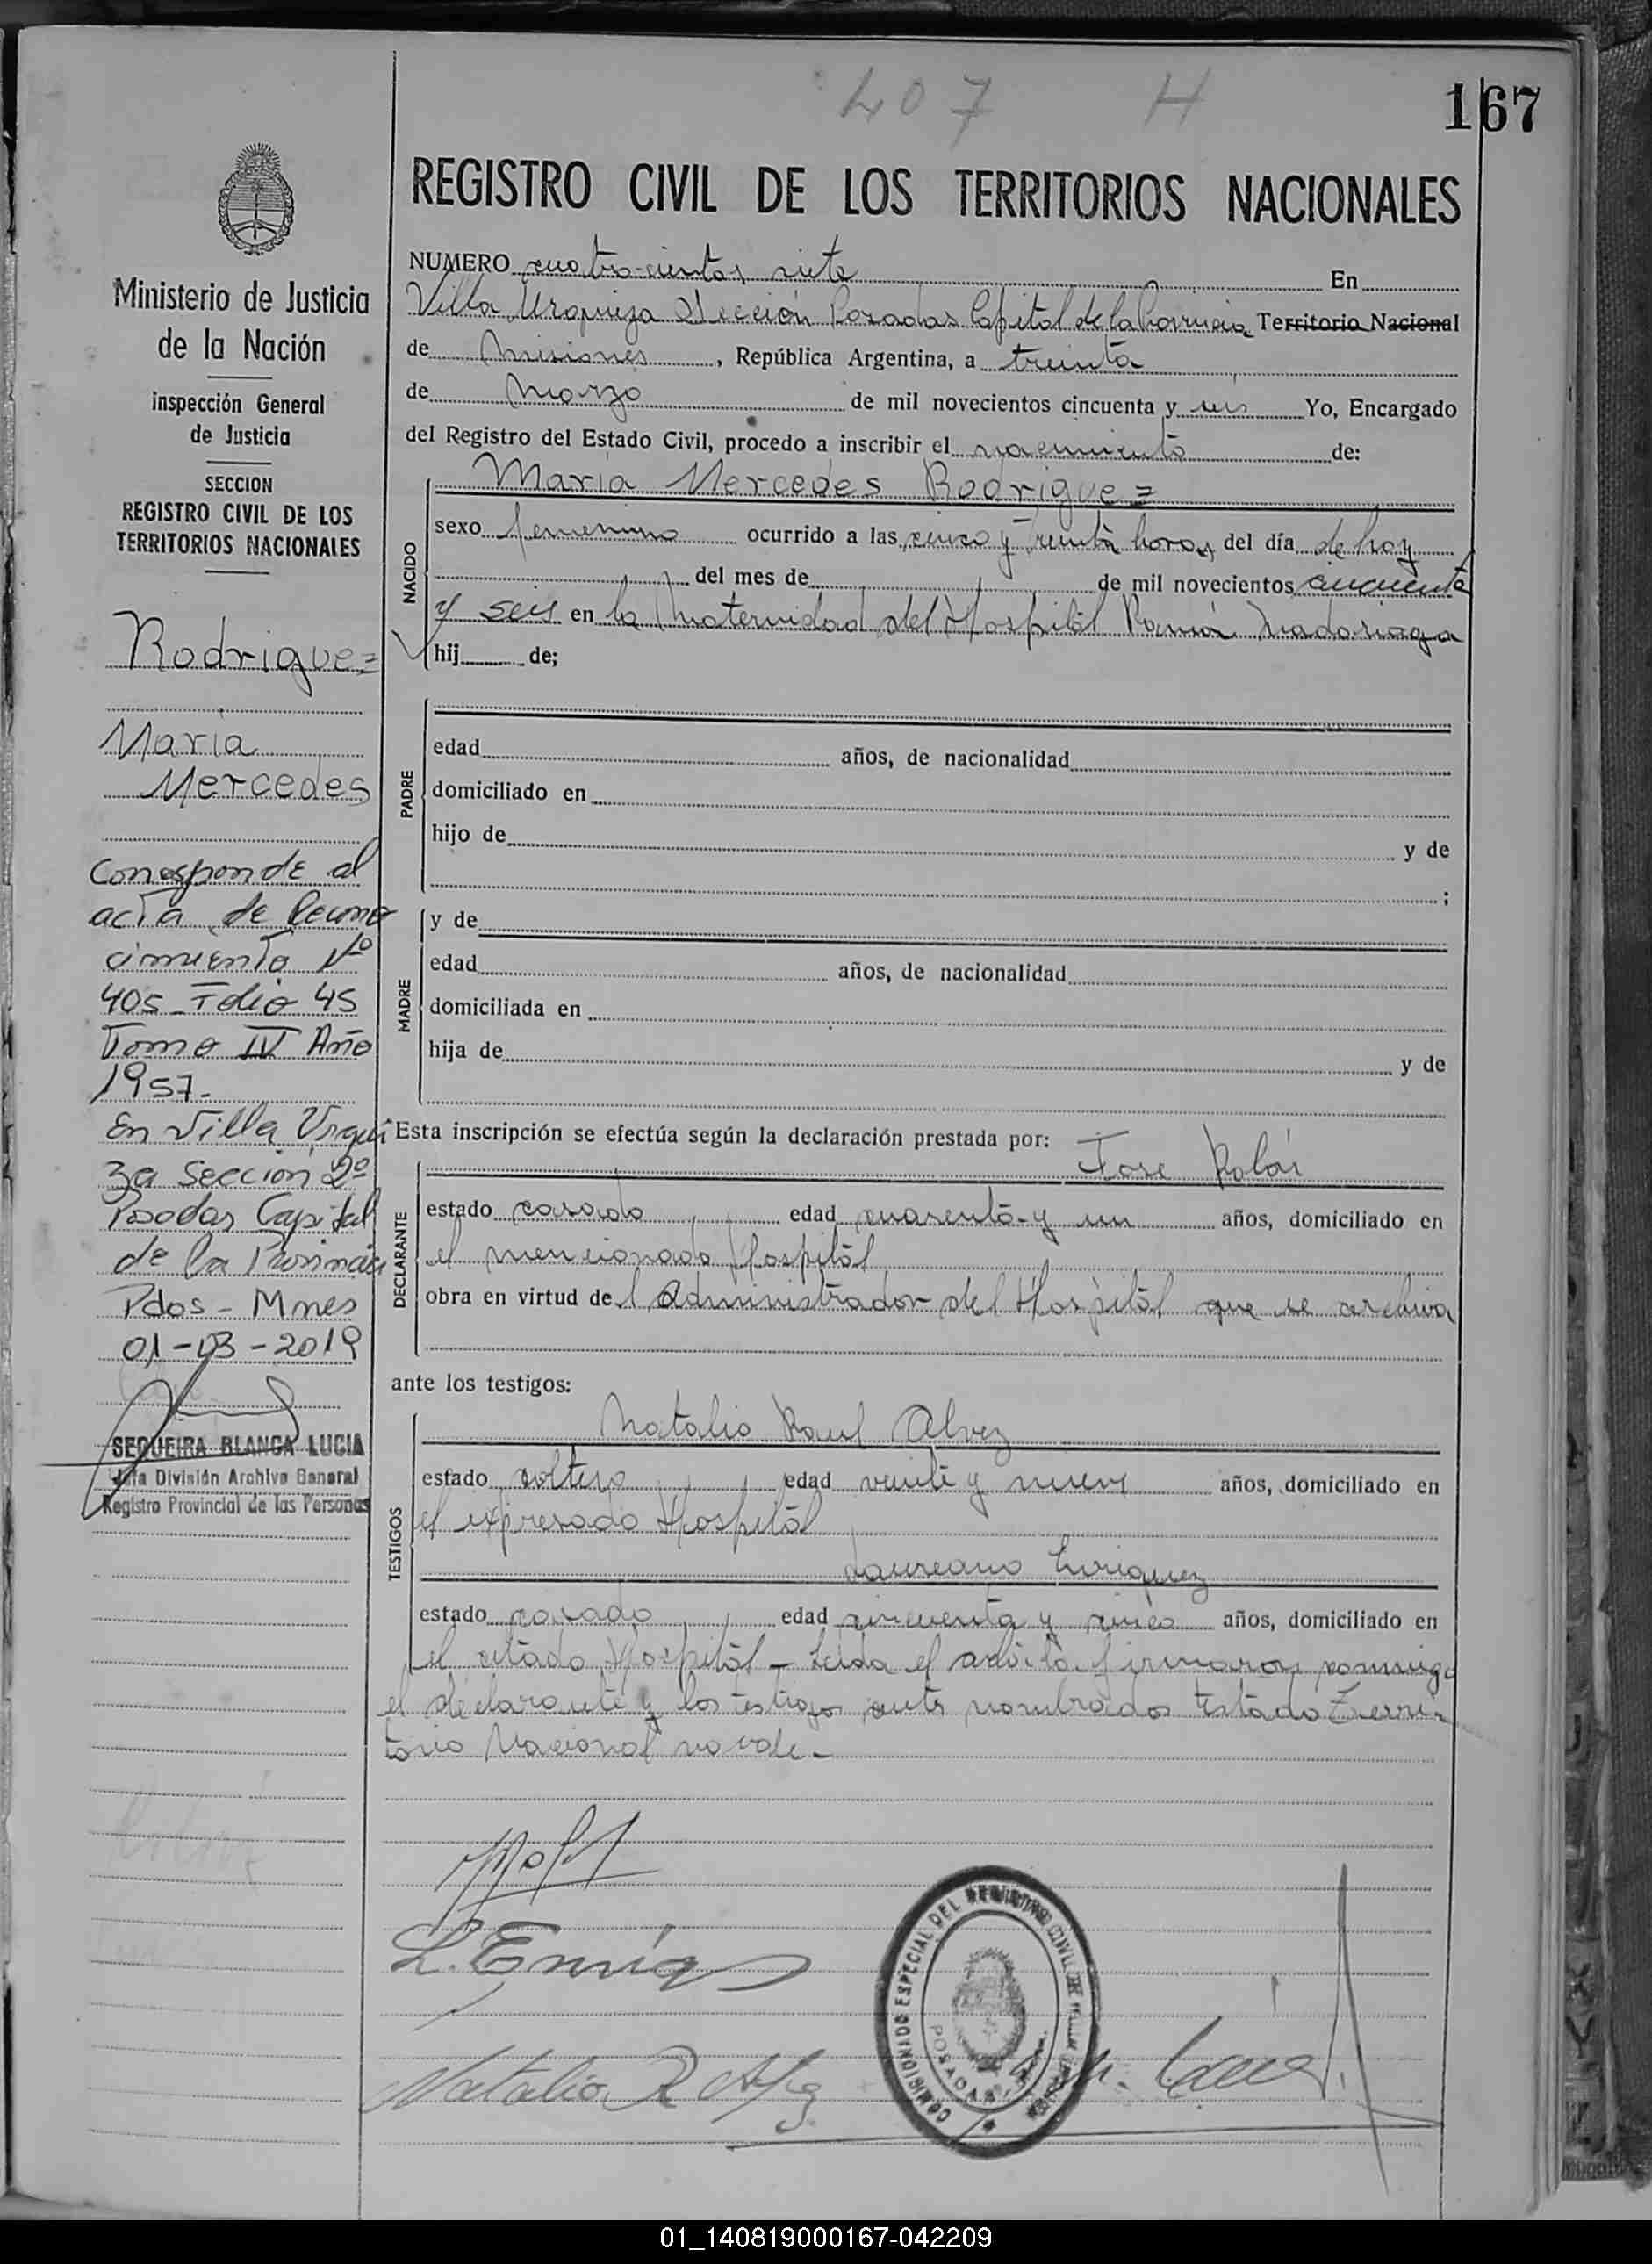 407 H
167
REGISTRO CIVIL DE LOS TERRITORIOS NACIONALES
Ministerio de Justicia
de la Nación
inspección General
de Justicia
SECCION
REGISTRO CIVIL DE LOS
TERRITORIOS NACIONALES
Rodriguez
Maria
Mercedes
Corresponde al
acta de Recono
cimiento Nº
405 - Folio 45
Tomo IV Año
1957.-
En Villa Urqui
za Seccion 2º
Posadas Capital
de la Provincia
Pdas - Mnes
01-03-2019
SEQUEIRA BLANCA LUCIA
Jefa División Archivo General
Registro Provincial de las Personas
NUMERO cuatro-cientos siete En
Villa Urquiza Sección Posadas Capital de la Provincia Territorio Nacional
de Misiones, República Argentina, a treinta
de Marzo de mil novecientos cincuenta y seis Yo, Encargado
del Registro del Estado Civil, procedo a inscribir el nacimiento de:
NACIDO
Maria Mercedes Rodriguez
sexo femenino ocurrido a las cinco y treinta horas del día de hoy
del mes de de mil novecientos cincuenta
y seis en la Maternidad del Hospital Ramón Madariaga
hij de;
PADRE
edad años, de nacionalidad
domiciliado en
hijo de y de
;
MADRE
y de
edad años, de nacionalidad
domiciliada en
hija de y de
Esta inscripción se efectúa según la declaración prestada por:
DECLARANTE
Jose
estado casado edad cuarenta y un años, domiciliado en
el mencionado Hospital
obra en virtud del Administrador del Hospital que se archiva
ante los testigos:
TESTIGOS
Natalio Raul Alvez
estado soltero edad veinte y nueve años, domiciliado en
el expresado Hospital
Laureano Enriquez
estado casado edad cincuenta y cinco años, domiciliado en
el citado Hospital - Leida el acta la firmaron conmigo
el declarante y los testigos antes nombrados Testado Terri-
torio Nacional no vale-
L. Enriq
Natalio R Alvez
COMISIONADO ESPECIAL DEL REGISTRO CIVIL
POSADAS
01_140819000167-042209